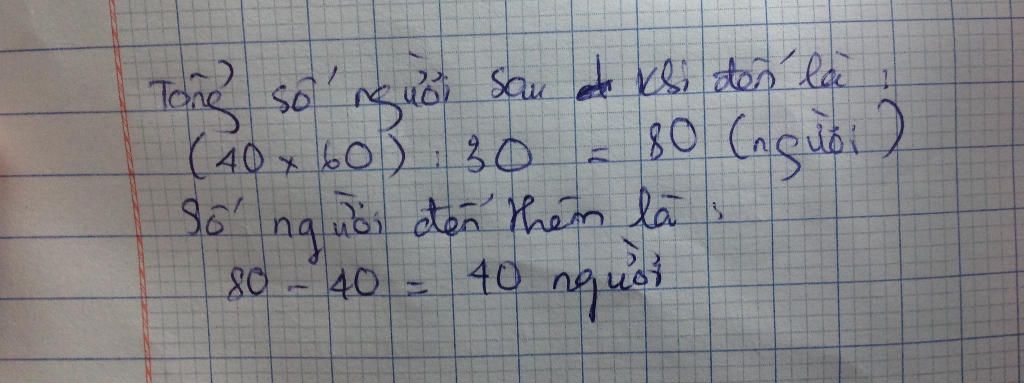 Tổng số người sau khi đến là :
(40 x 60) : 30 = 80 (người)
Số người đến thêm là :
80 - 40 = 40 người